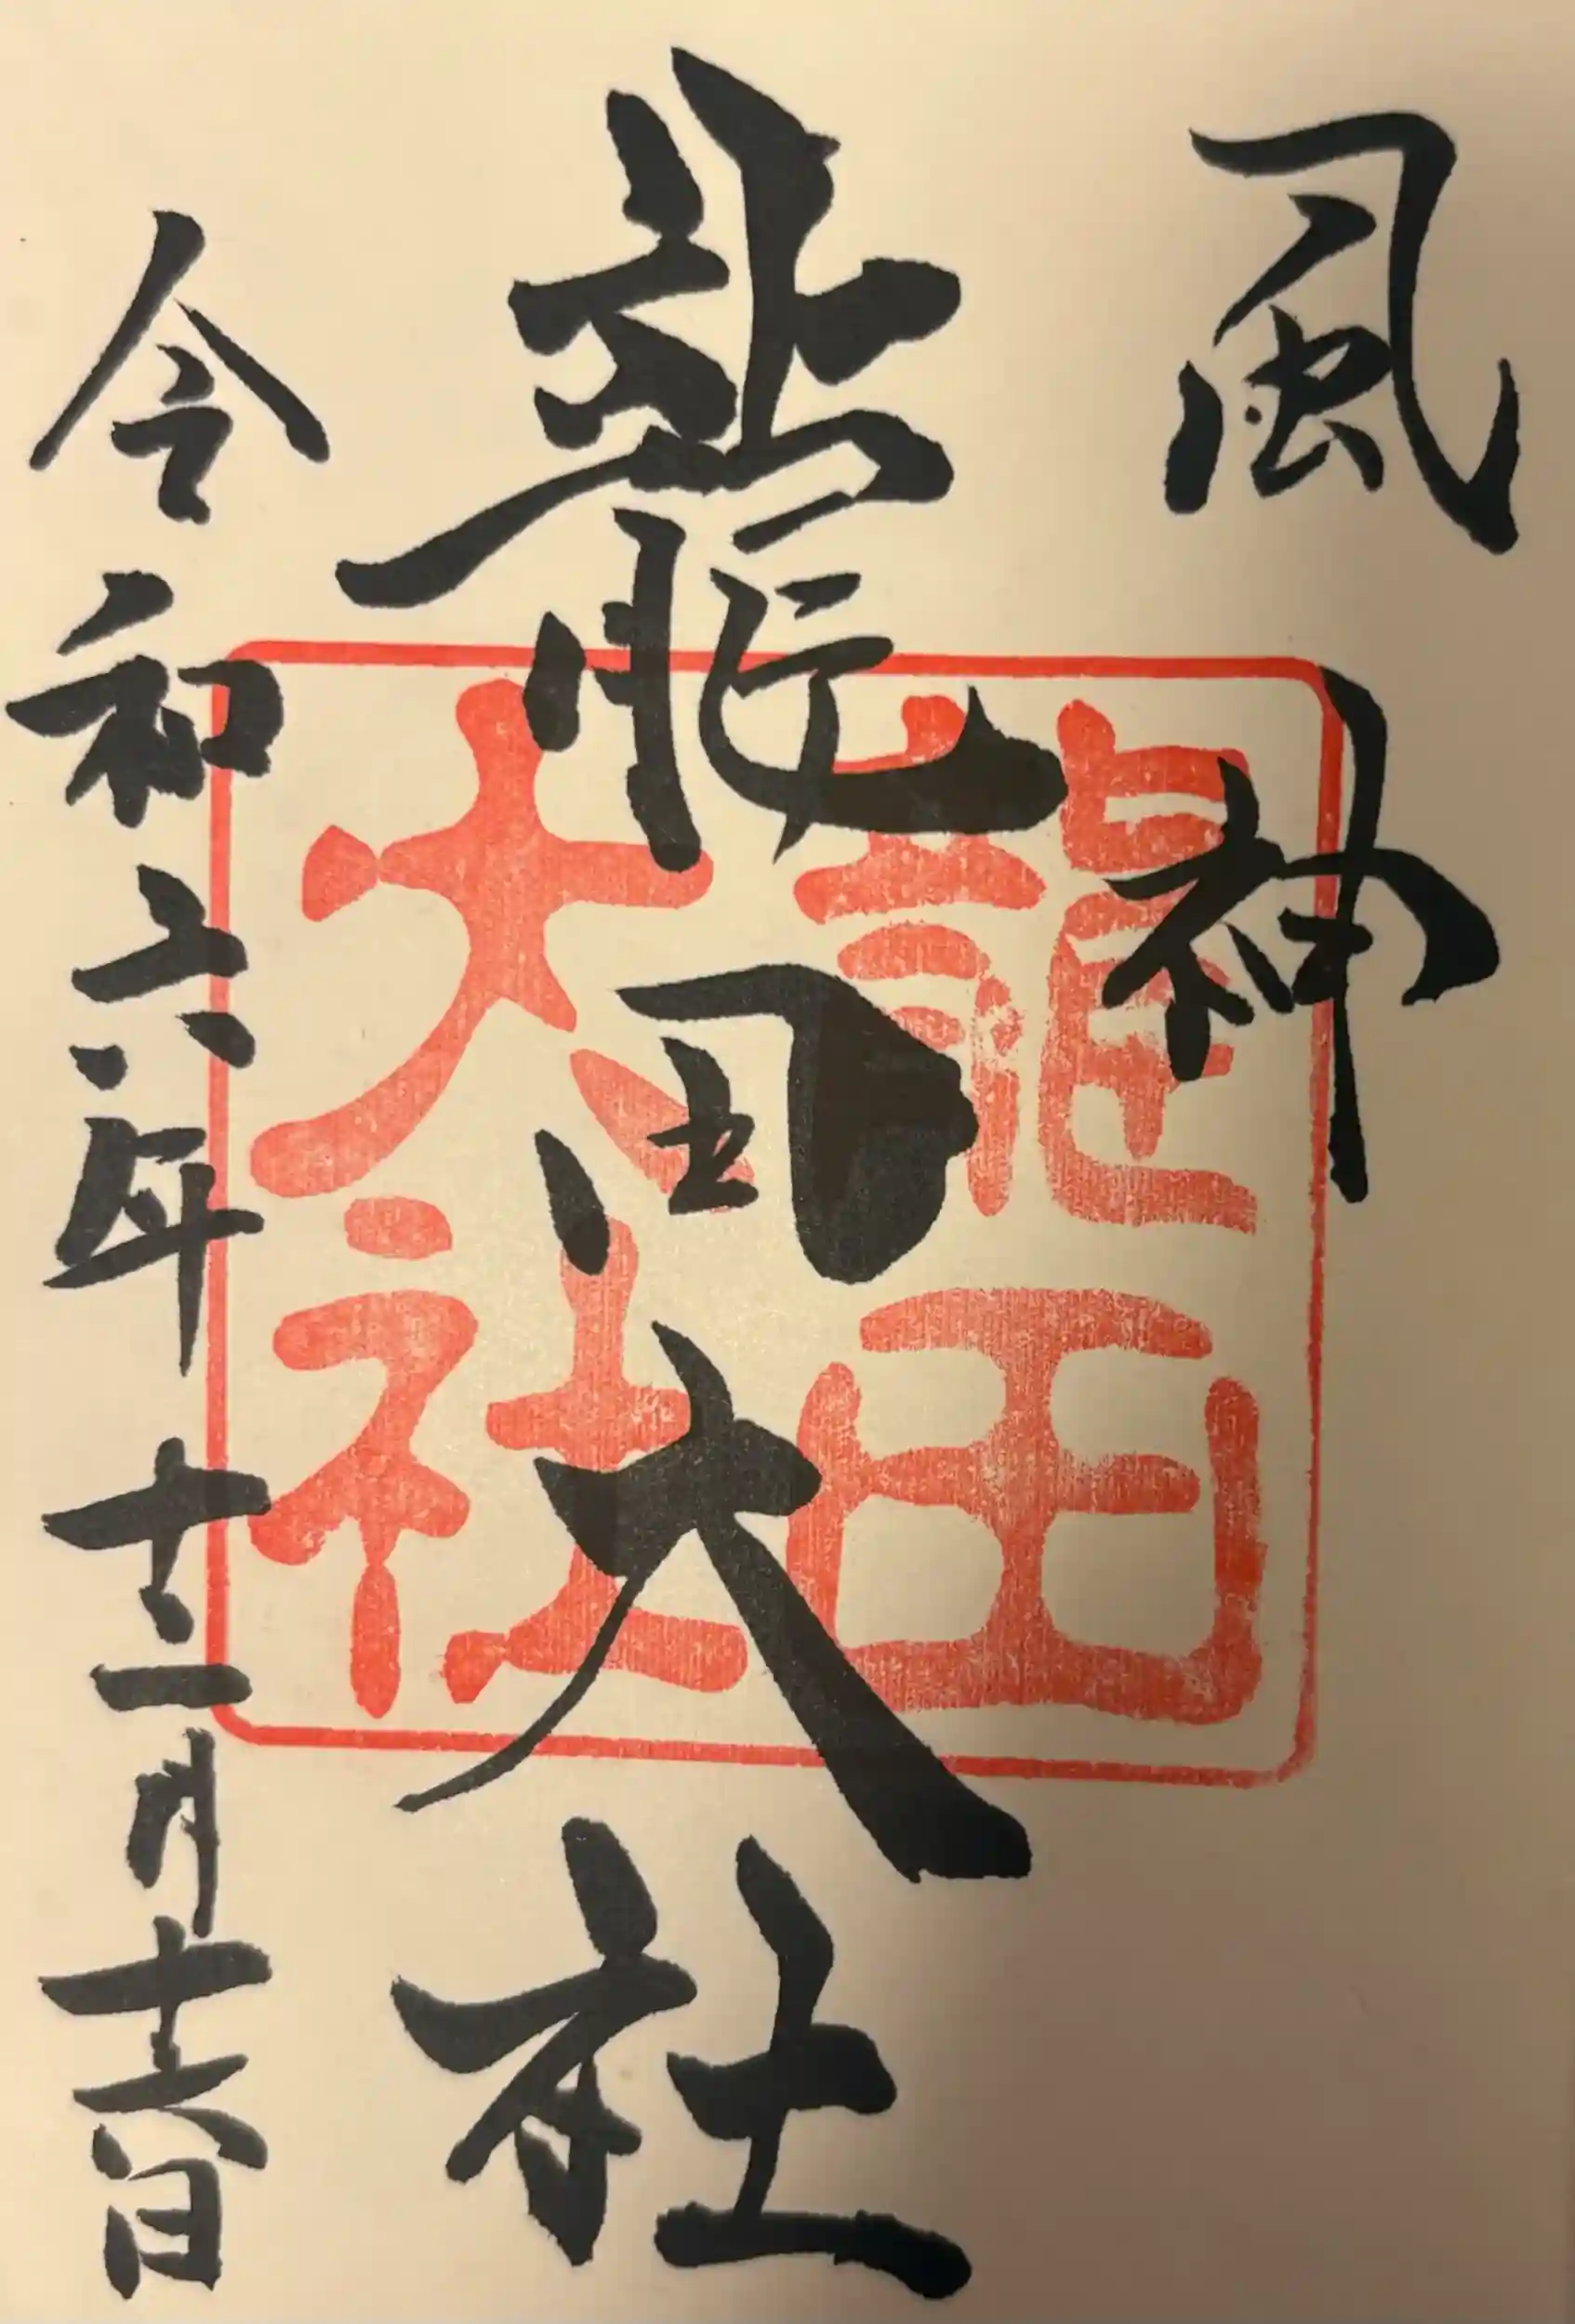 風神
龍田大社
龍田
大社
令和六年十二月十六日